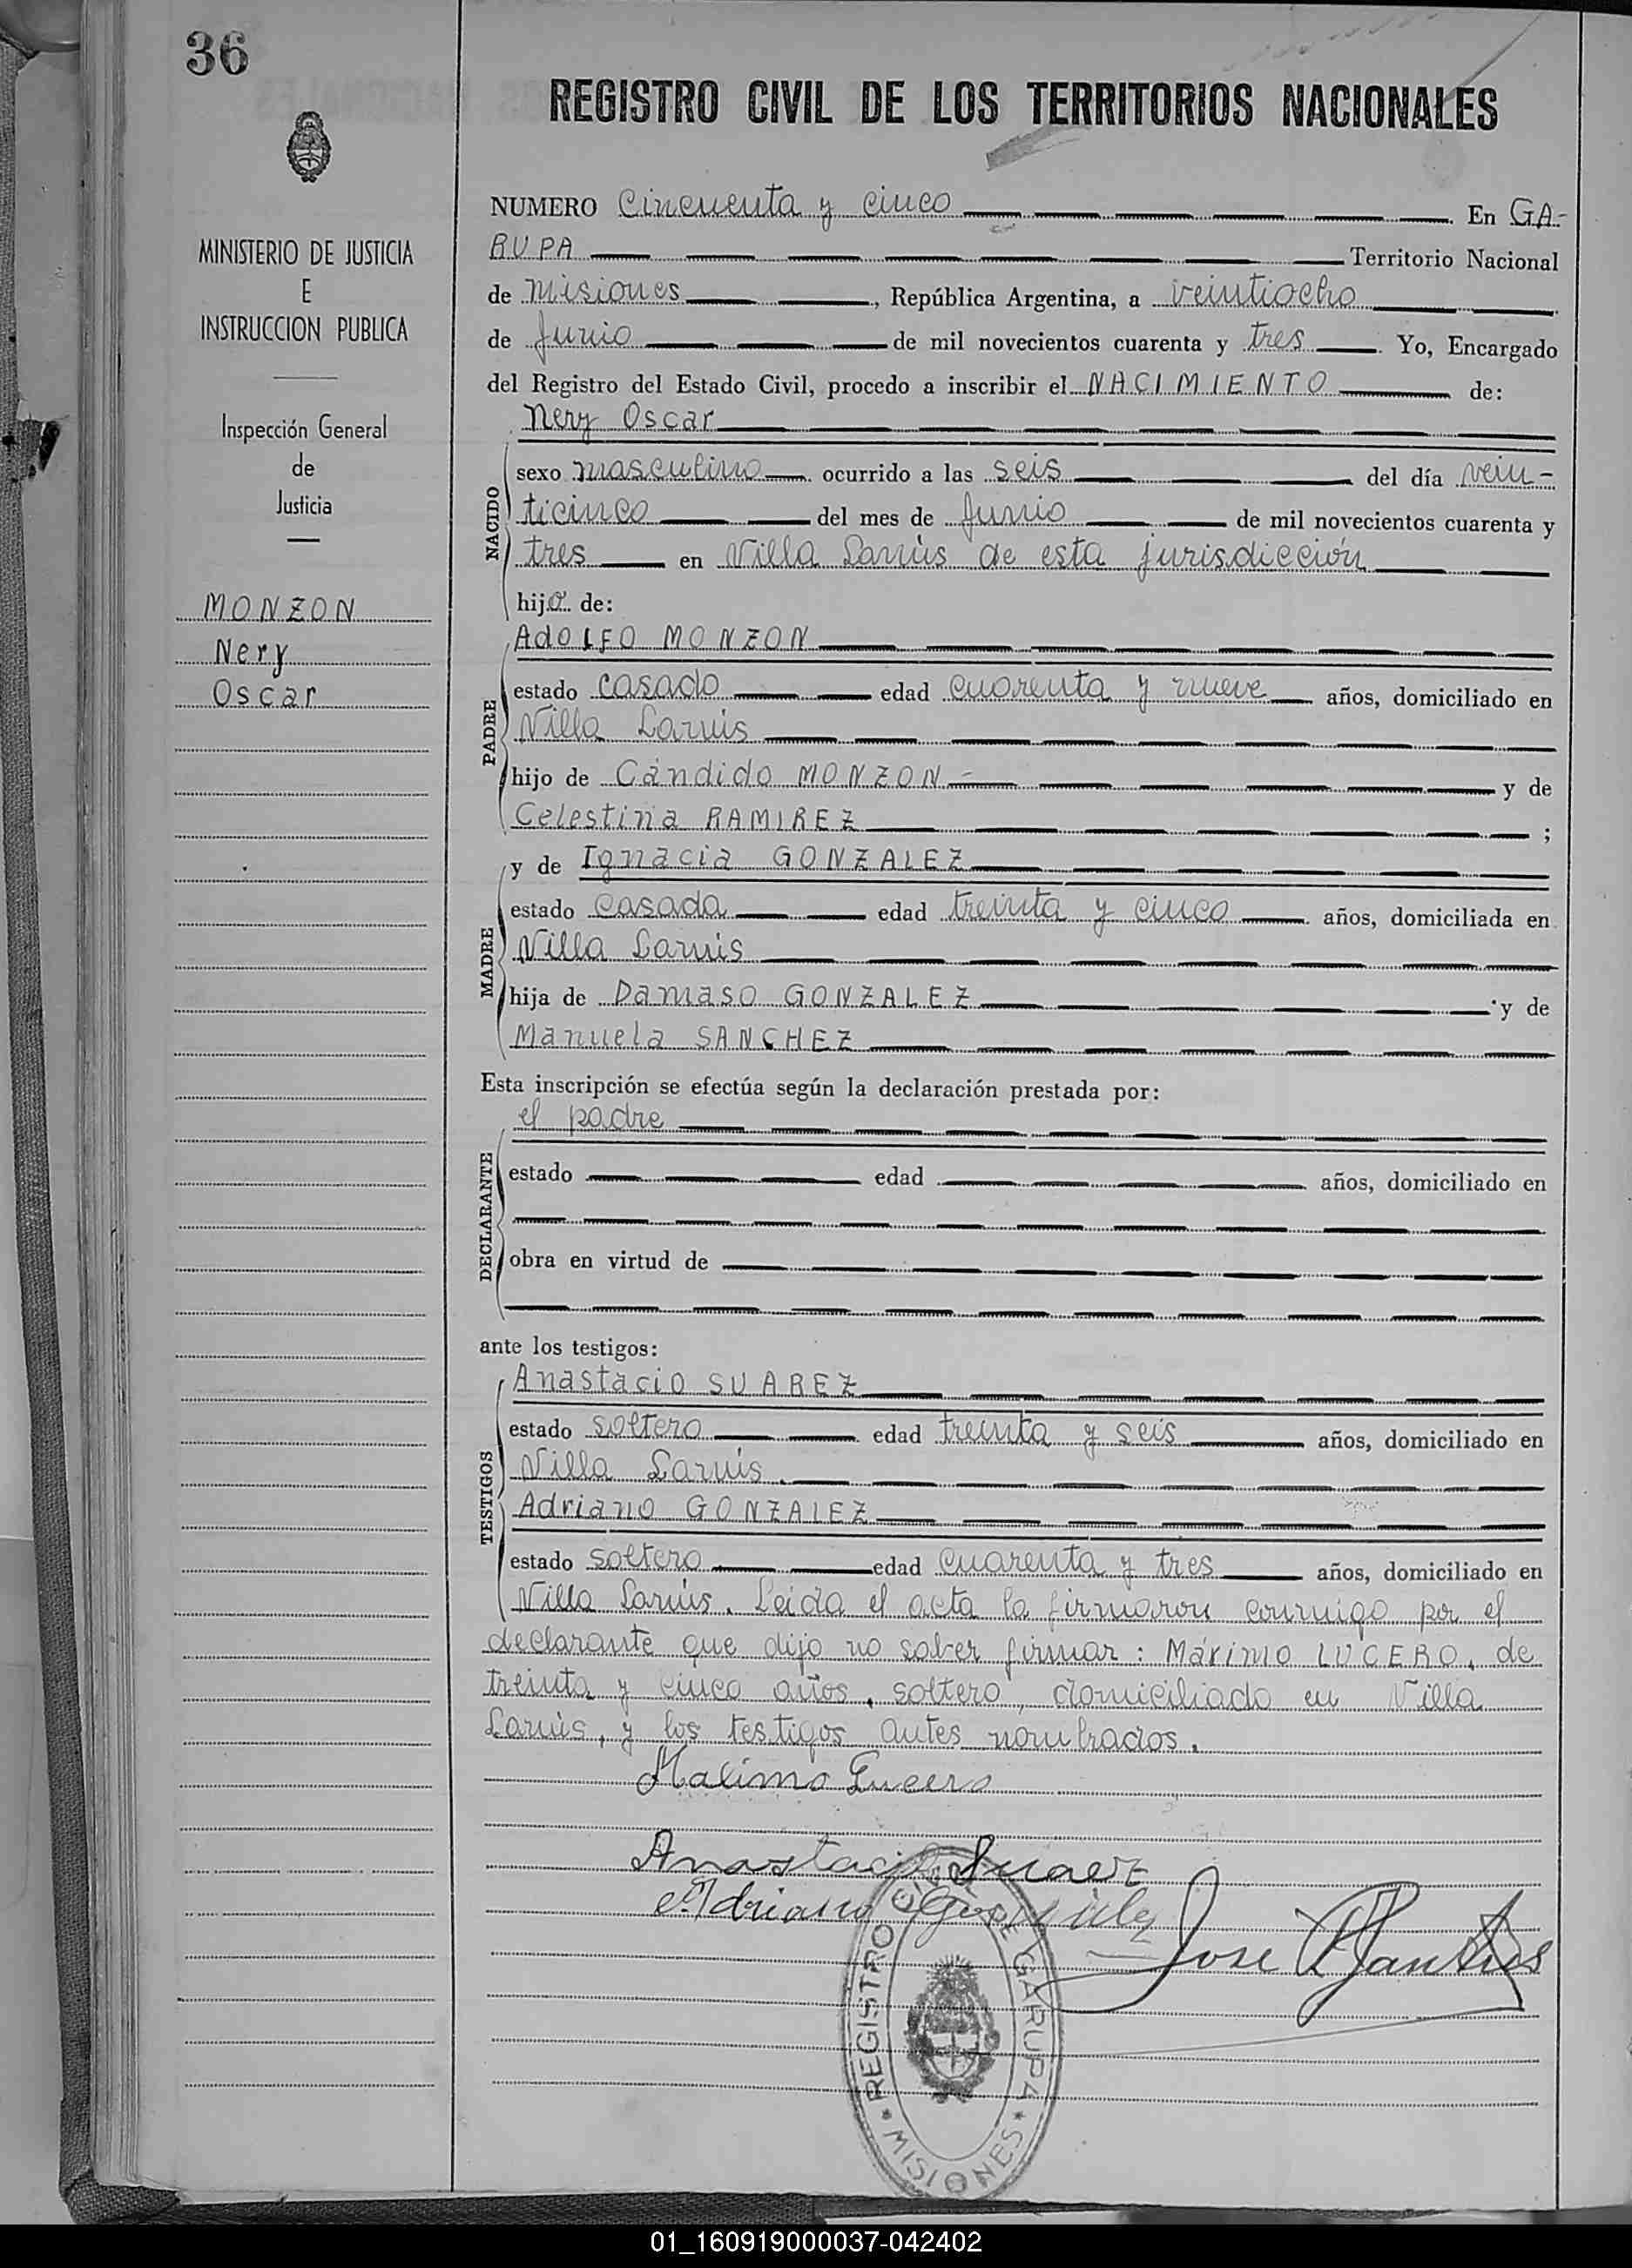 36
REGISTRO CIVIL DE LOS TERRITORIOS NACIONALES
MINISTERIO DE JUSTICIA
E
INSTRUCCION PUBLICA
Inspección General
de
Justicia
MONZON
Nery
Oscar
NUMERO Cincuenta y cinco En GA-
RUPA Territorio Nacional
de Misiones, República Argentina, a veintiocho
de Junio de mil novecientos cuarenta y tres. Yo, Encargado
del Registro del Estado Civil, procedo a inscribir el NACIMIENTO de:
Nery Oscar
NACIDO
sexo masculino ocurrido a las seis del día vein-
ticinco del mes de Junio de mil novecientos cuarenta y
tres en Villa Lanús de esta jurisdicción
hijo de:
PADRE
ADOLFO MONZON
estado casado edad cuarenta y nueve años, domiciliado en
Villa Lanús
hijo de Cándido MONZON y de
Celestina RAMIREZ ;
MADRE
y de Ignacia GONZALEZ
estado casada edad treinta y cinco años, domiciliada en
Villa Lanús
hija de Damaso GONZALEZ y de
Manuela SANCHEZ
Esta inscripción se efectúa según la declaración prestada por:
DECLARANTE
el padre
estado edad años, domiciliado en
obra en virtud de
ante los testigos:
TESTIGOS
Anastacio SUAREZ
estado soltero edad treinta y seis años, domiciliado en
Villa Lanús.
Adriano GONZALEZ
estado soltero edad cuarenta y tres años, domiciliado en
Villa Lanús. Leída el acta la firmaron conmigo por el
declarante que dijo no saber firmar: Máximo LUCERO, de
treinta y cinco años, soltero, domiciliado en Villa
Lanús, y los testigos antes nombrados.
Maximo Lucero
Anastacio Suarez
Adriano Gonzalez
Jose
REGISTRO CIVIL DE GARUPA
* MISIONES *
01_160919000037-042402